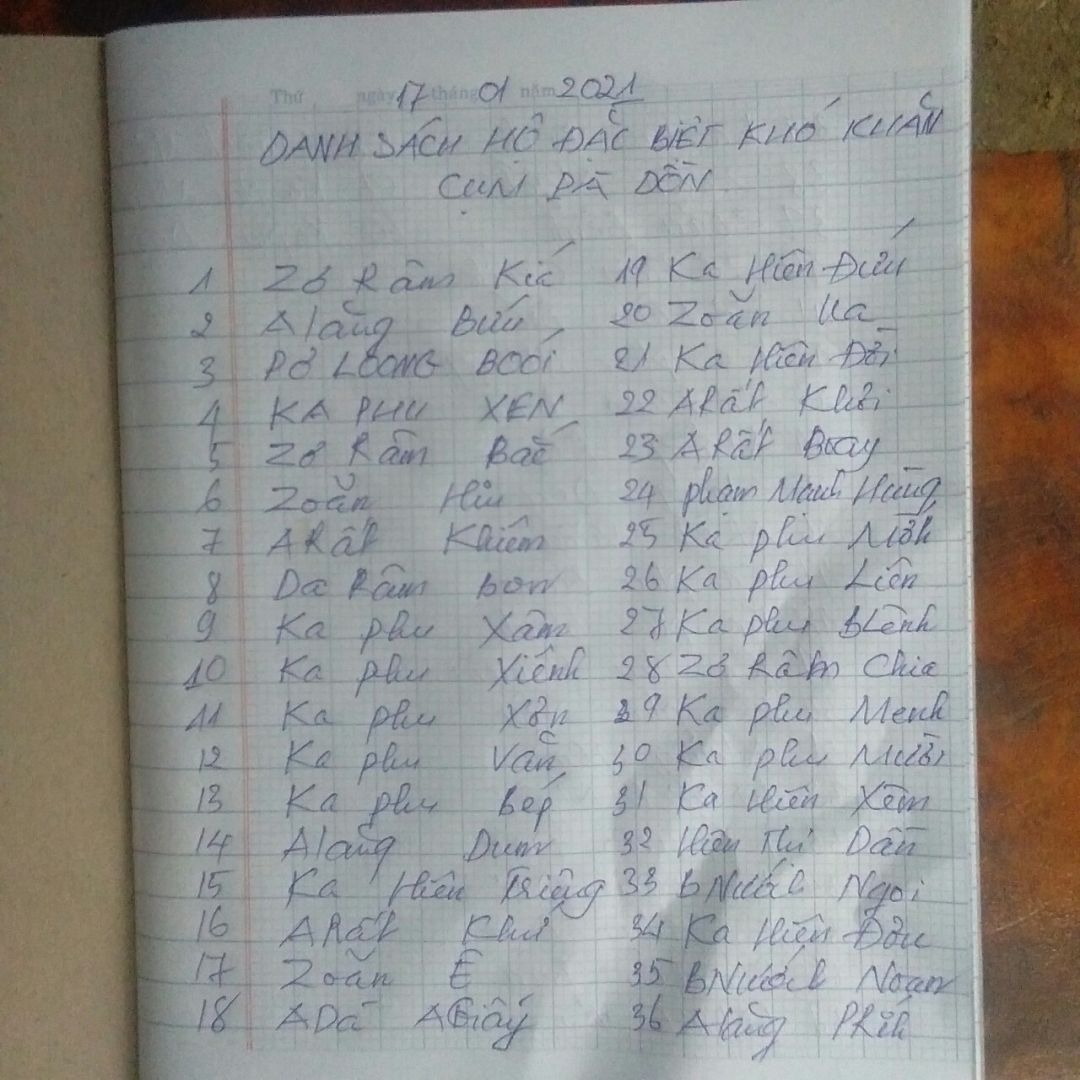 Thứ ngày 17 tháng 01 năm 2021
DANH SÁCH HỘ ĐẶC BIỆT KHÓ KHĂN
CỤM PÀ DỒN
1 Zơ Râm Kíc
2 Alăng Bứu
3 PƠ LOONG BOÓI
4 KA PHU XEN
5 Zơ Râm Bắc
6 Zoăn Hiu
7 ARất Khiêm
8 Da Râm bon
9 Ka phu Xâm
10 Ka phu Xiênh
11 Ka phu Xơn
12 Ka phu Văn
13 Ka phu Bép
14 Alăng Dum
15 Ka Hiên Triệng
16 ARất Khứ
17 Zoăn Ê
18 ADa AGiấy
19 Ka Hiên Đứu
20 Zoăn Ka
21 Ka Hiên Đời
22 ARất Khôi
23 ARất Boay
24 phạm Mạnh Hùng
25 Ka phu
26 Ka phu Liên
27 Ka phu BLênh
28 Zơ Râm Chia
29 Ka phu Menh
30 Ka phu Mười
31 Ka Hiên Xêm
32 Hiên Thị Dần
33 BNướch Ngọi
34 Ka Hiên Đơu
35 BNướch Noam
36 Alăng